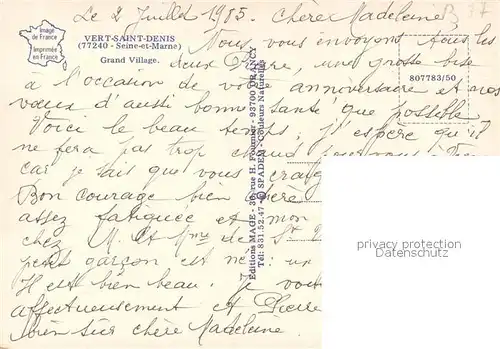 Le 2 Juillet 1985. Chère Madeleine
Image
de France
Imprimée
en France
VERT-SAINT-DENIS
(77240 - Seine-et-Marne)
Grand Village.
807783/50
Nous vous envoyons tous les
deux Pierre, une grosse bise
à l'occasion de votre anniversaire et nos
vœux d'aussi bonne santé que possible
Voici le beau temps, J'espère qu'il
ne fera pas trop chaud pour vous
car je sais que vous
Bon courage bien chère
assez fatiguée et mon
chez M. et Mme de St
petit garçon est né: un
Il est bien beau. Je vous
affectueusement et Pierre
bien sûr chère Madeleine.
Editions MAGE - 36, rue H. Fougnet - 93700 DRANCY
Tél: 831.52.47 - © SPADEM - Couleurs Naturelles
privacy protection
Datenschutz